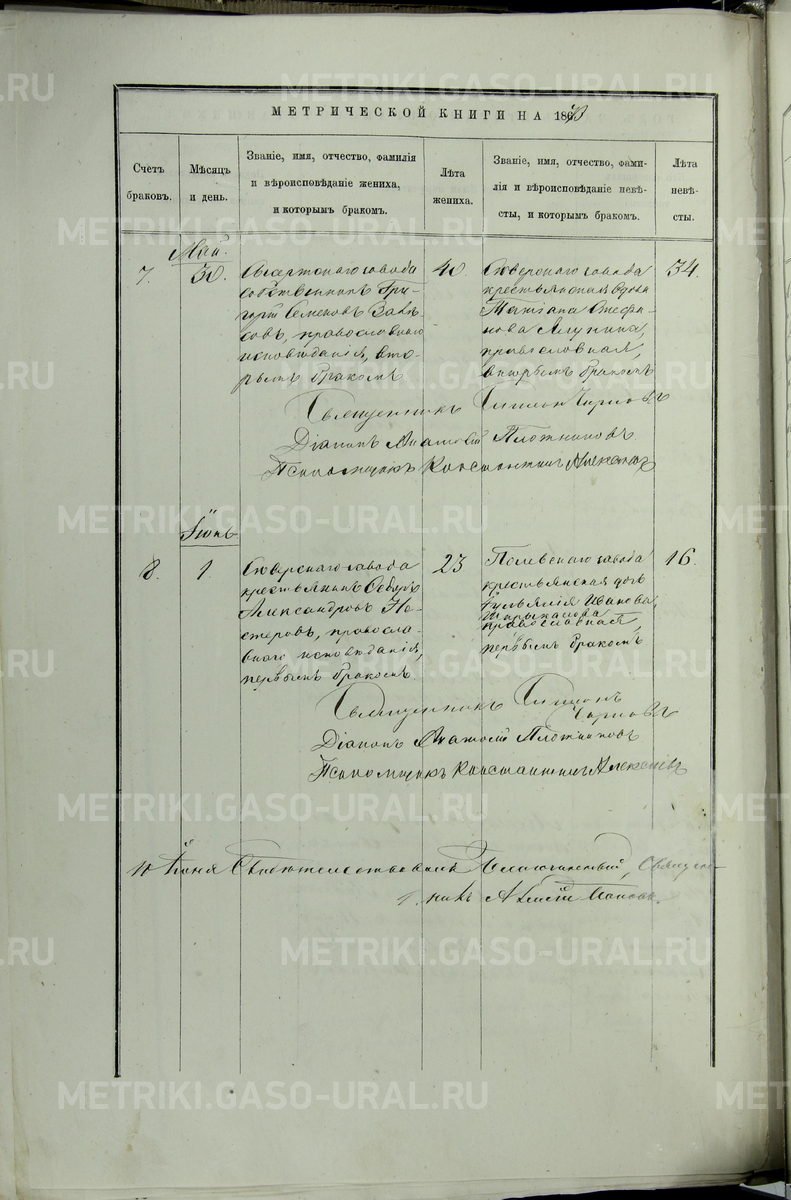 МЕТРИЧЕСКОЙ КНИГИ НА 186
Счетъ браковъ.
Мѣсяцъ и день.
Званіе, имя, отчество, фамилія
и вѣроисповѣданіе жениха,
и которымъ бракомъ.
Лѣта жениха.
Званіе, имя, отчество, фами-
лія и вѣроисповѣданіе невѣ-
сты, и которымъ бракомъ.
Лѣта невѣ-
сты.
Май.
7.
30.
Сысертскаго завода
собственникъ Гри-
горій Семеновъ
православнаго
исповѣданія, вто-
рымъ бракомъ
40.
Сѣверскаго завода
крестьянская вдова
Татіана Стефа-
нова
православная,
бракомъ
34.
Священникъ Симеонъ Черновъ
Діаконъ Плотниковъ
Псаломщикъ Константинъ
Іюнь
8.
1.
Сѣверскаго завода
крестьянинъ Ѳедоръ
Александровъ Не-
стеровъ, правосла-
внаго исповѣданія,
первымъ бракомъ
23
Полевскаго завода
крестьянская дочь
Иванова
православная,
первымъ бракомъ
16.
Священникъ Симеонъ
Черновъ
Діаконъ Плотниковъ
Псаломщикъ Константинъ
10 Іюня Свидѣтельствовалъ Священ-
никъ Поповъ.
METRIKI.GASO-URAL.RU